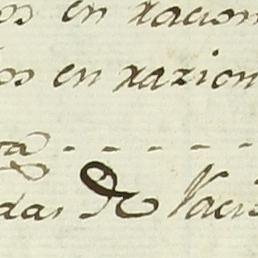 os en racion
os en razion
va - - - - -
das de Vaci